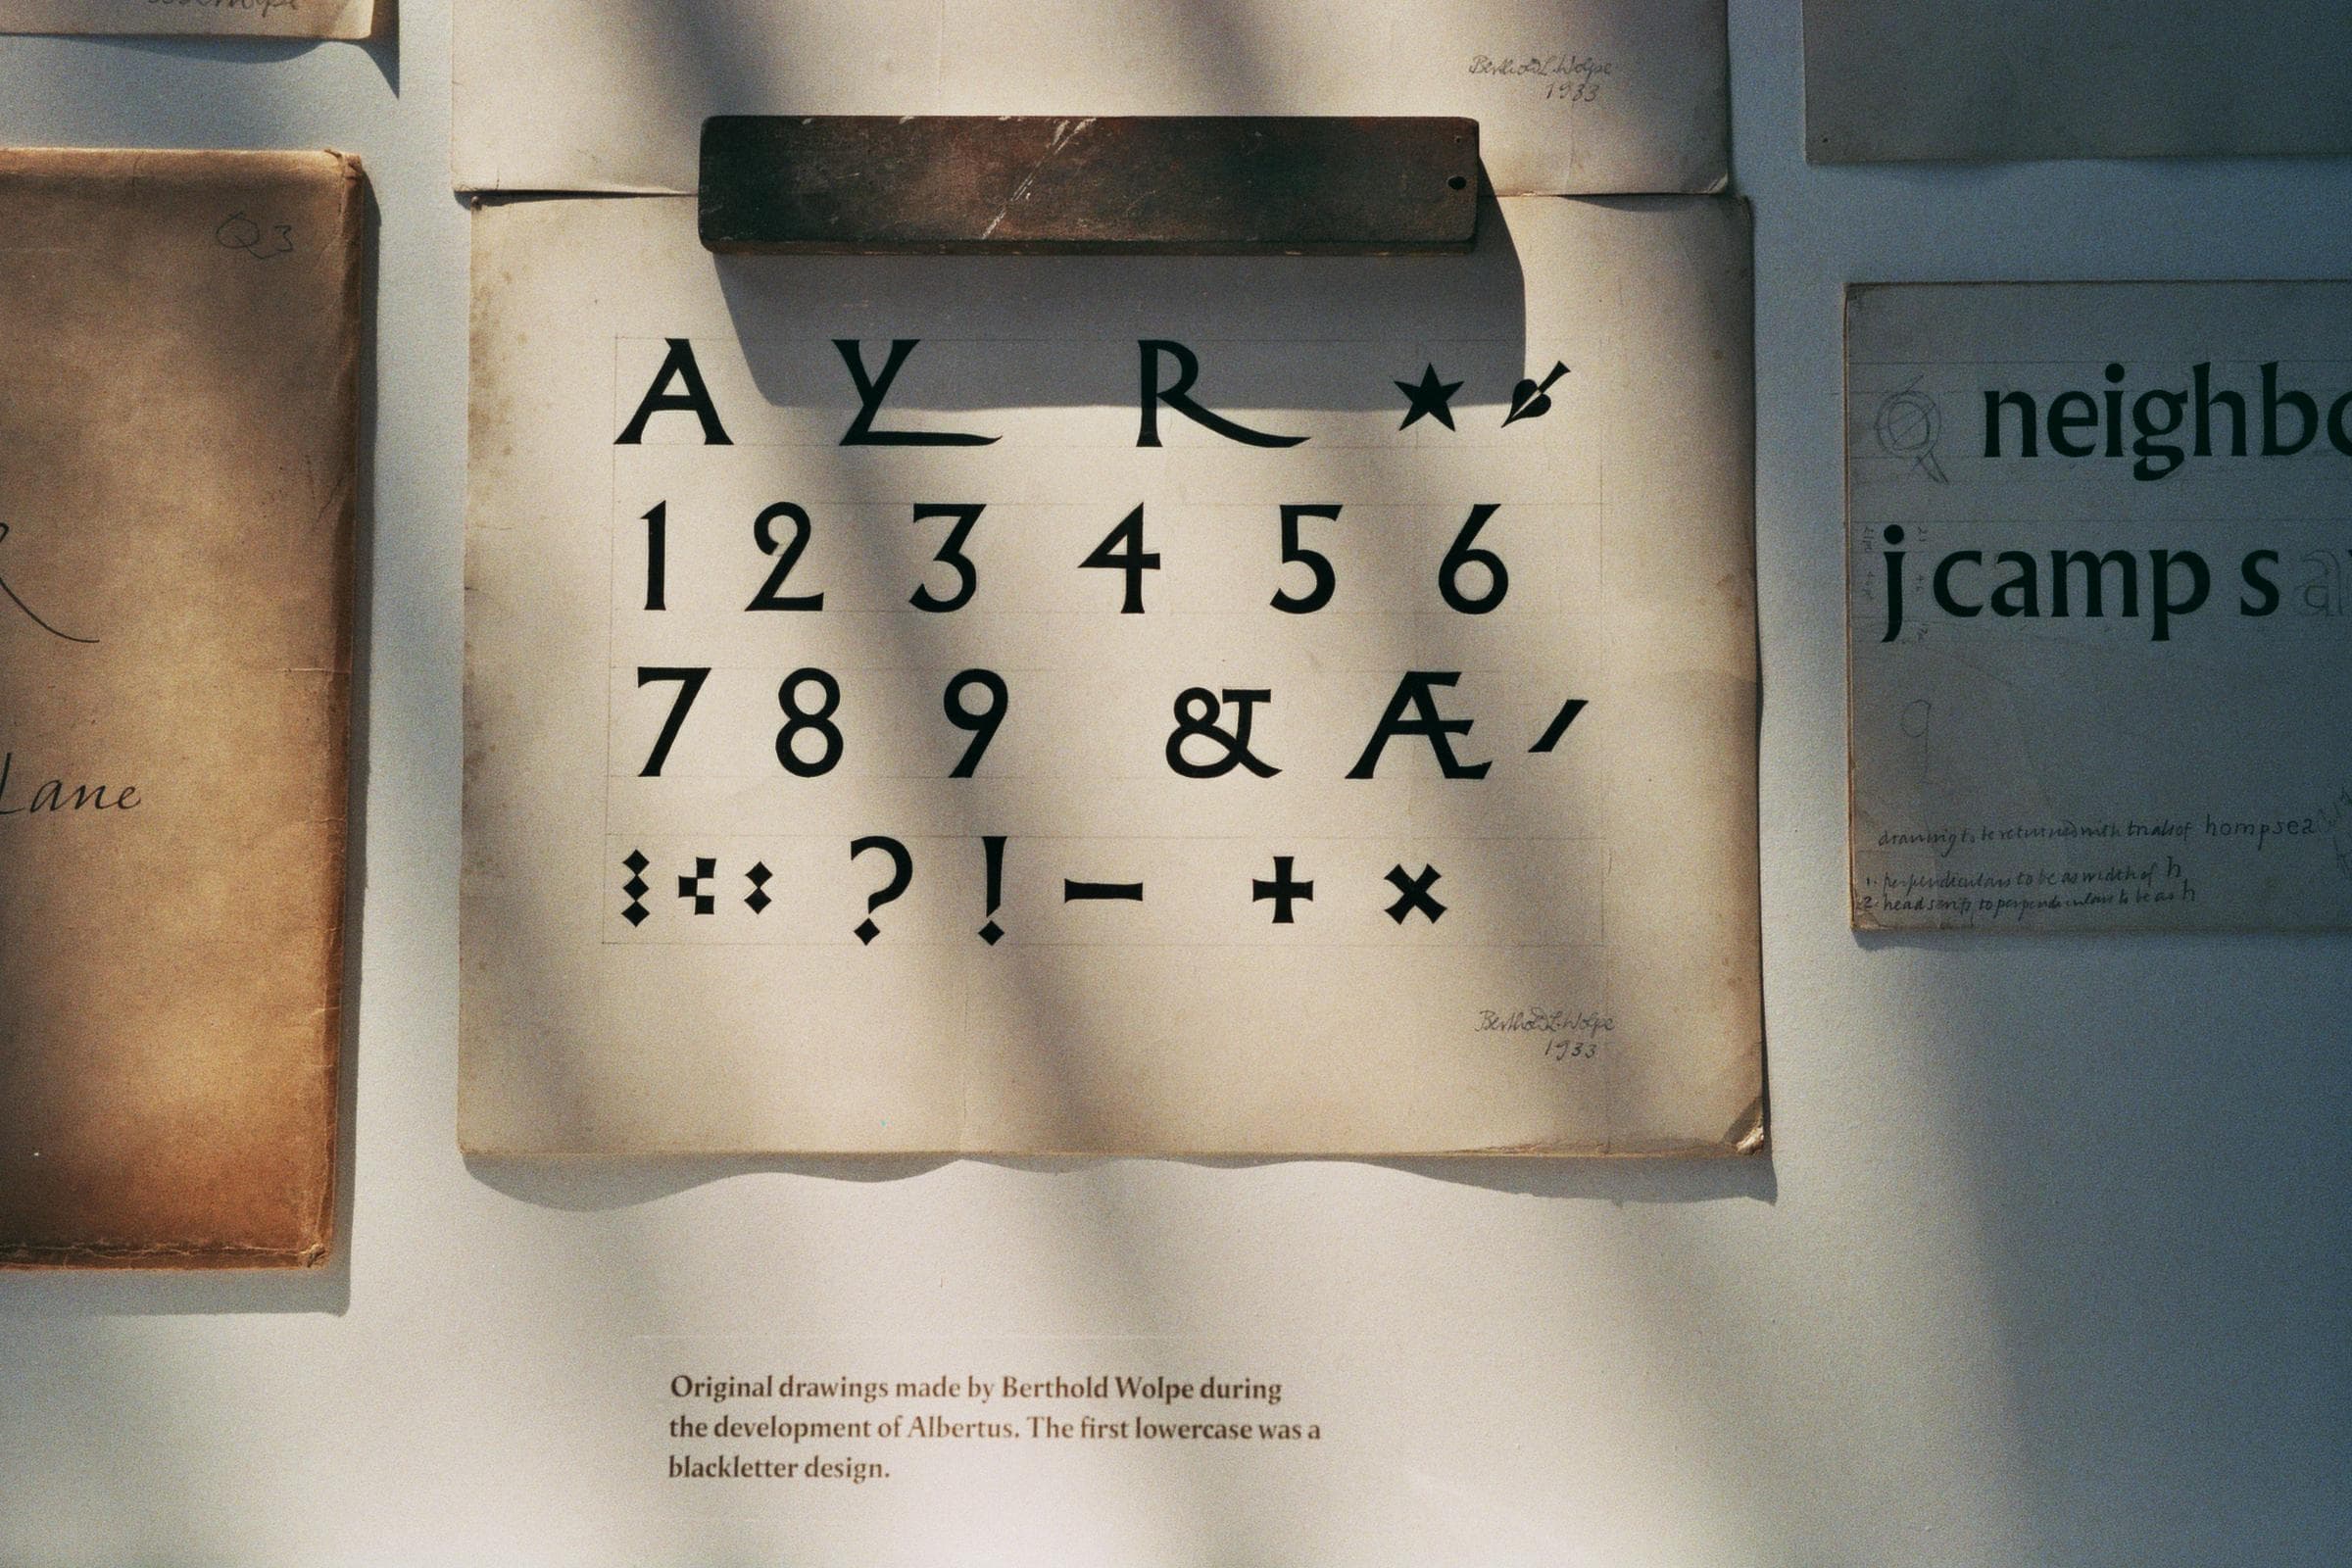 Berthold L. Wolpe
1933
Q3
Lane
A Y R ★
1 2 3 4 5 6
7 8 9 & Æ ′
? ! – + ×
Berthold L. Wolpe
1933
neighbo
j camp s a
q
drawing to be returned with trials of hompsea
1. perpendiculars to be as width of h
2. head serifs to perpendiculars to be as h
Original drawings made by Berthold Wolpe during
the development of Albertus. The first lowercase was a
blackletter design.